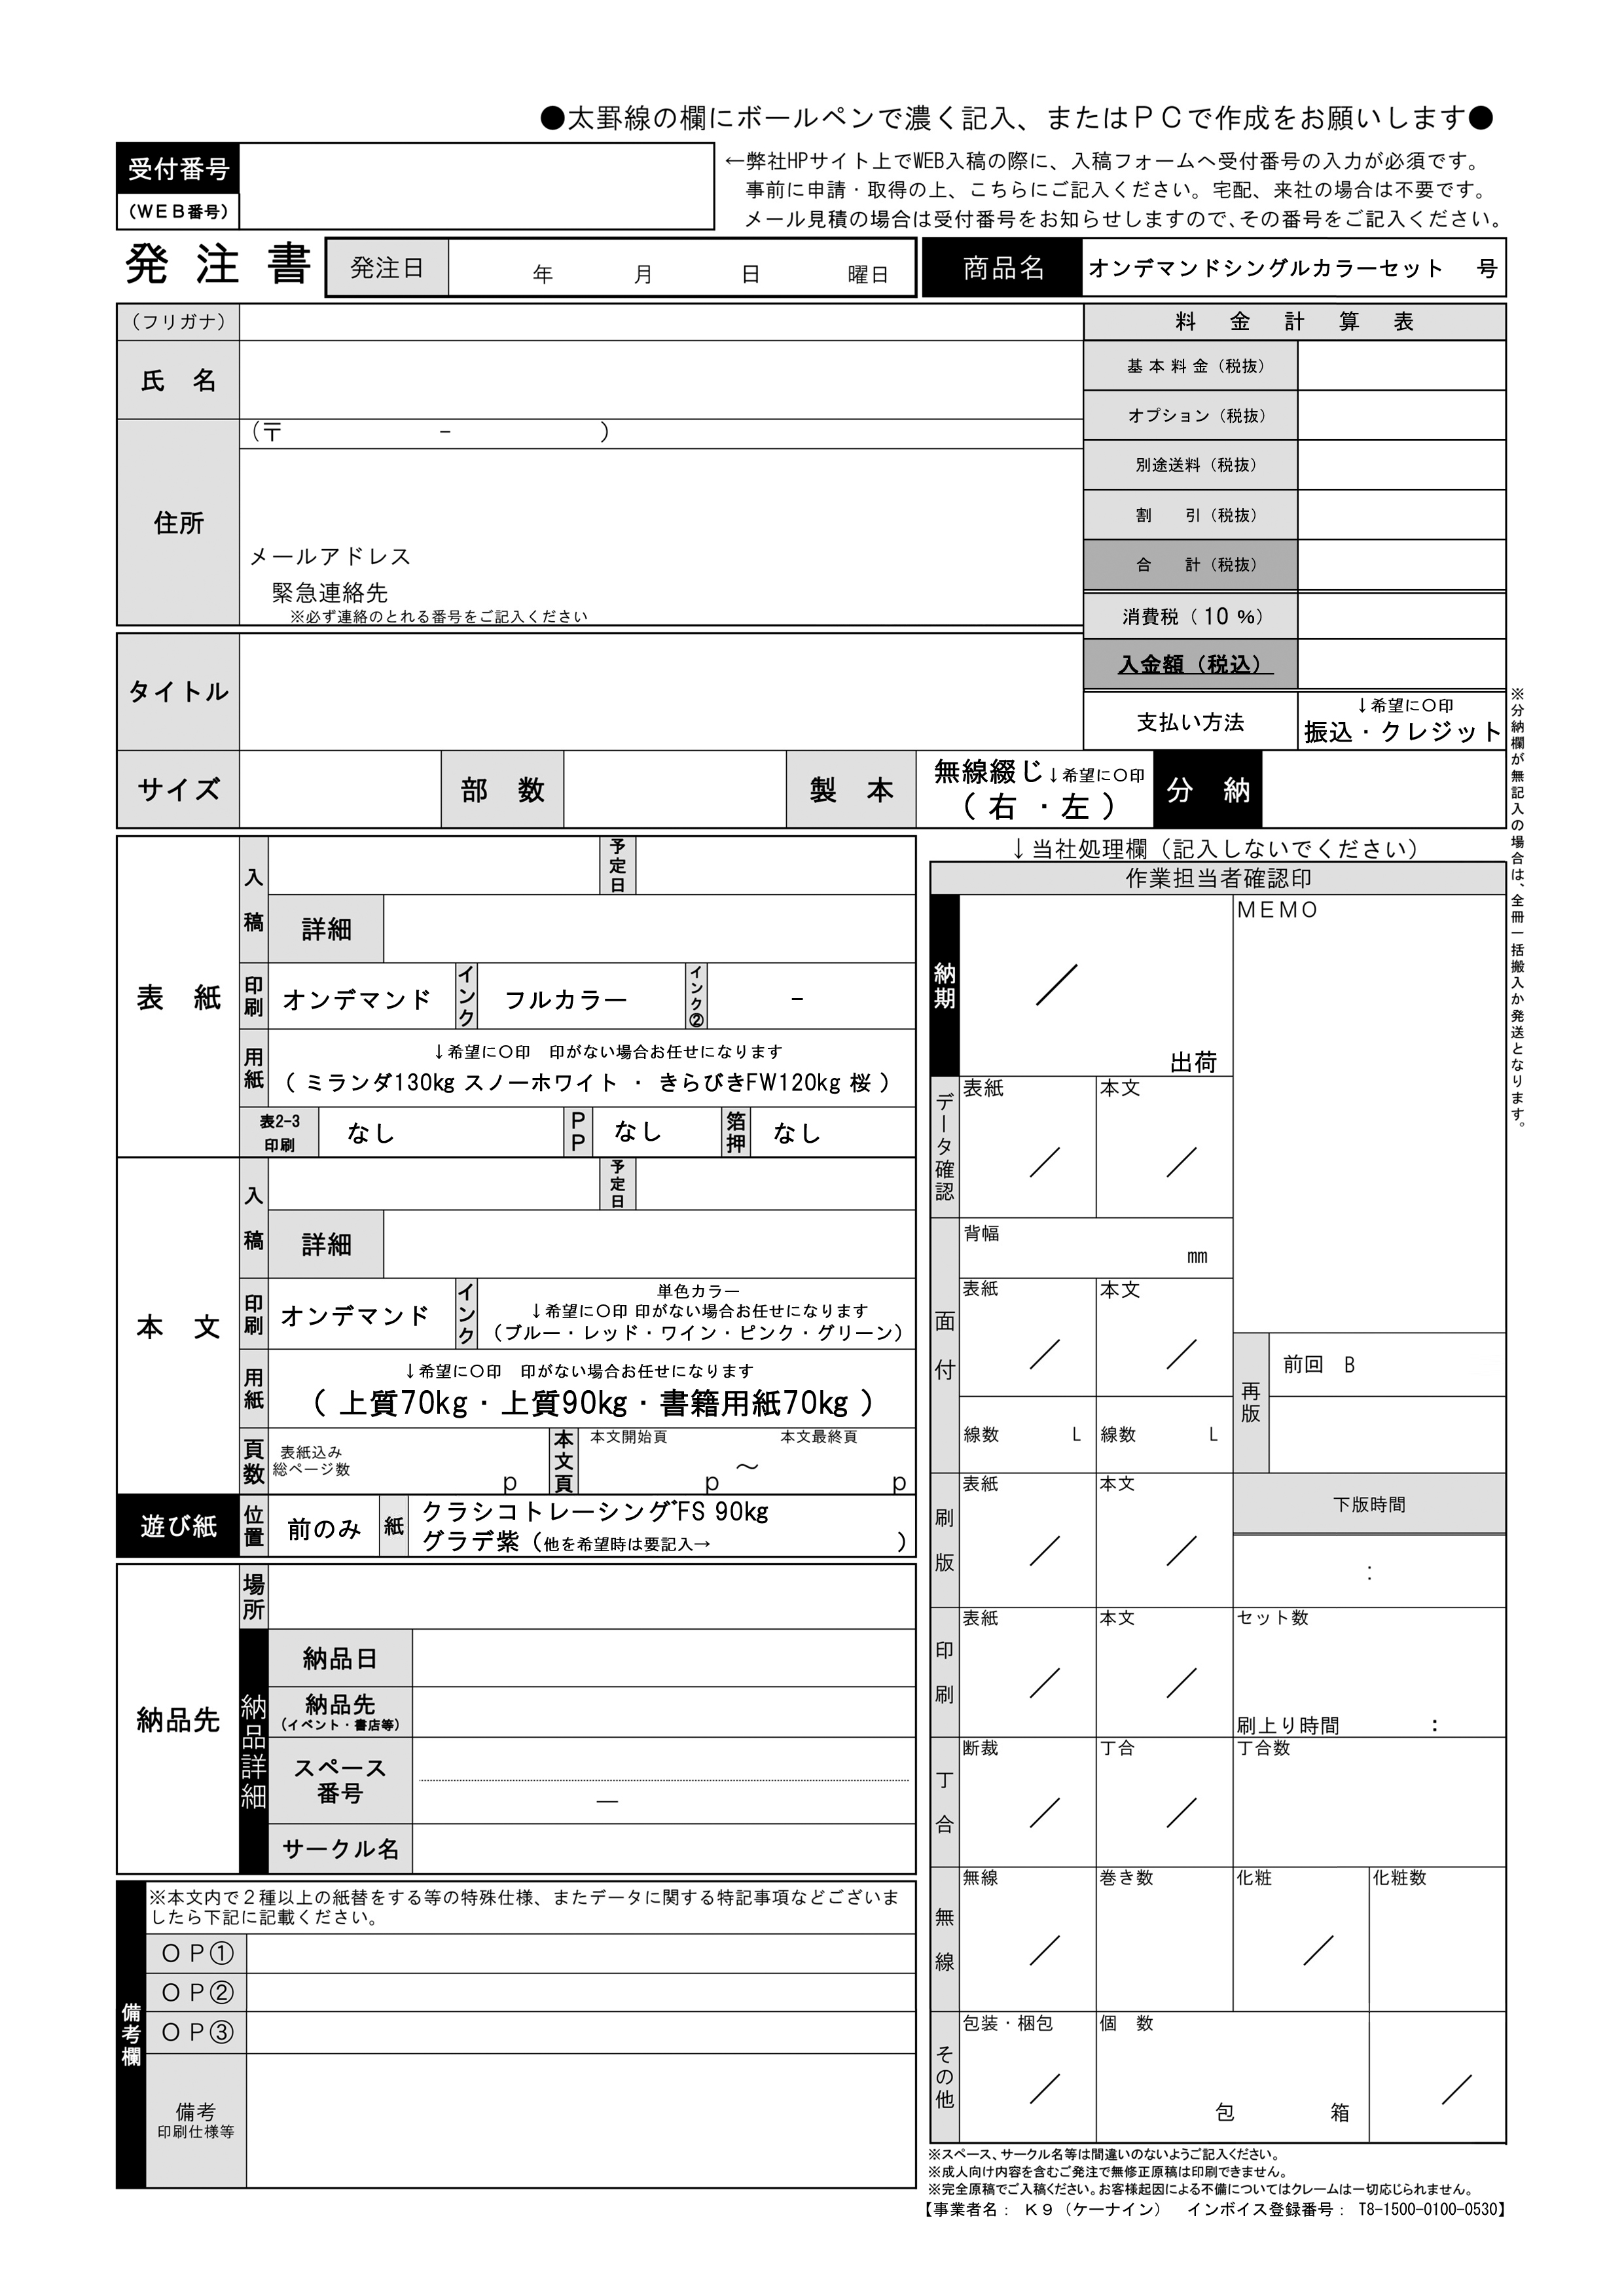 ●太罫線の欄にボールペンで濃く記入、またはＰＣで作成をお願いします●
受付番号
（ＷＥＢ番号）
←弊社HPサイト上でWEB入稿の際に、入稿フォームへ受付番号の入力が必須です。
事前に申請・取得の上、こちらにご記入ください。宅配、来社の場合は不要です。
メール見積の場合は受付番号をお知らせしますので、その番号をご記入ください。
発 注 書
発注日
年 月 日 曜日
商品名
オンデマンドシングルカラーセット 号
（フリガナ）
氏 名
住所
（〒 － ）
メールアドレス
緊急連絡先
※必ず連絡のとれる番号をご記入ください
料 金 計 算 表
基 本 料 金（税抜）
オプション（税抜）
別途送料（税抜）
割 引（税抜）
合 計（税抜）
消費税（ 10 %）
入金額（税込）
支払い方法
↓希望に〇印
振込・クレジット
タイトル
サイズ
部 数
製 本
無線綴じ↓希望に〇印
（ 右 ・左 ）
分 納
※分納欄が無記入の場合は、全冊一括搬入か発送となります。
表 紙
入稿
予定日
詳細
印刷
オンデマンド
インク
フルカラー
インク②
－
用紙
↓希望に〇印 印がない場合お任せになります
（ ミランダ130kg スノーホワイト ・ きらびきFW120kg 桜 ）
表2-3
印刷
なし
ＰＰ
なし
箔押
なし
本 文
入稿
予定日
詳細
印刷
オンデマンド
インク
単色カラー
↓希望に〇印 印がない場合お任せになります
（ブルー・レッド・ワイン・ピンク・グリーン）
用紙
↓希望に〇印 印がない場合お任せになります
（ 上質70kg・上質90kg・書籍用紙70kg ）
頁数
表紙込み
総ページ数
p
本文頁
本文開始頁 本文最終頁
p ～ p
遊び紙
位置
前のみ
紙
クラシコトレーシングFS 90kg
グラデ紫（他を希望時は要記入→ ）
納品先
場所
納品詳細
納品日
納品先
（イベント・書店等）
スペース
番号
―
サークル名
備考欄
※本文内で２種以上の紙替をする等の特殊仕様、またデータに関する特記事項などございま
したら下記に記載ください。
ＯＰ①
ＯＰ②
ＯＰ③
備考
印刷仕様等
↓当社処理欄（記入しないでください）
作業担当者確認印
納期
／
出荷
MEMO
データ確認
表紙
／
本文
／
面付
背幅
㎜
表紙
／
本文
／
線数 L
線数 L
再版
前回 B
刷版
表紙
／
本文
／
下版時間
：
印刷
表紙
／
本文
／
セット数
刷上り時間 ：
丁合
断裁
／
丁合
／
丁合数
無線
無線
／
巻き数
化粧
／
化粧数
その他
包装・梱包
／
個 数
包 箱
／
※スペース、サークル名等は間違いのないようご記入ください。
※成人向け内容を含むご発注で無修正原稿は印刷できません。
※完全原稿でご入稿ください。お客様起因による不備についてはクレームは一切応じられません。
【事業者名： Ｋ９（ケーナイン） インボイス登録番号： T8-1500-0100-0530】